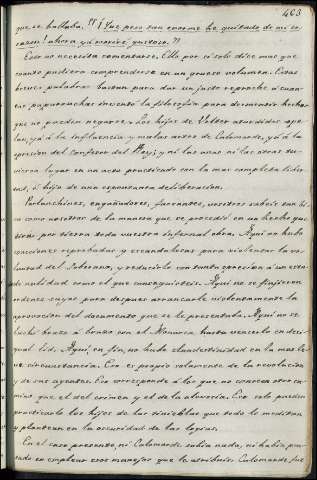 463
que se hallaba." "¡Que peso tan enorme he quitado de mi co-
razon! ahora ya moriré gustoso."
Esto no necesita comentarse. Ello por sí solo dice mas que
cuanto pudiera comprenderse en un grueso volumen. Estas
breves palabras bastan para dar un justo reproche á cuan-
tas paparruchas inventó la filosofía para desmentir hechos
que no pueden negarse. Los hijos de Volter aturdidos ape-
lan, yá á la influencia y malas artes de Calomarde, yá á la
opresion del confesor del Rey; y ni las unas ni las otras tu-
vieron lugar en un acto practicado con la mas completa liber-
tad, é hijo de una espontanea deliberacion.
embusteros, engañadores, farsantes, vosotros sabeis tan bi-
en como nosotros de la manera que se procedió en un hecho que
por tierra toda vuestra infernal obra. Aquí no hubo
reprobadas y escandalosas para violentar la vo-
luntad del Soberano, y reducirlo con tanta opresion á un esta-
do nulidad como el que conseguisteis. Aquí no se fingieron
ordenes suyas para despues arrancarle violentamente la
aprovacion del documento que se le presentaba. Aquí no se
luchó brazo á brazo con el Monarca hasta vencerlo en desi-
gual lid. Aquí, en fin, no hubo clandestinidad en la mas le-
ve circunstancia. Eso es propio solamente de la revolucion
y de sus agentes. Eso corresponde á los que no conocen otro ca-
mino que el del crimen y el de la alevosía. Eso solo pueden
practicarlo los hijos de las tinieblas que todo lo meditan
y plantean en la oscuridad de las logias.
En el caso presente, ni Calomarde sabía nada, ni habia pen-
sado en emplear esos manejos que le atribuis. Calomarde fue